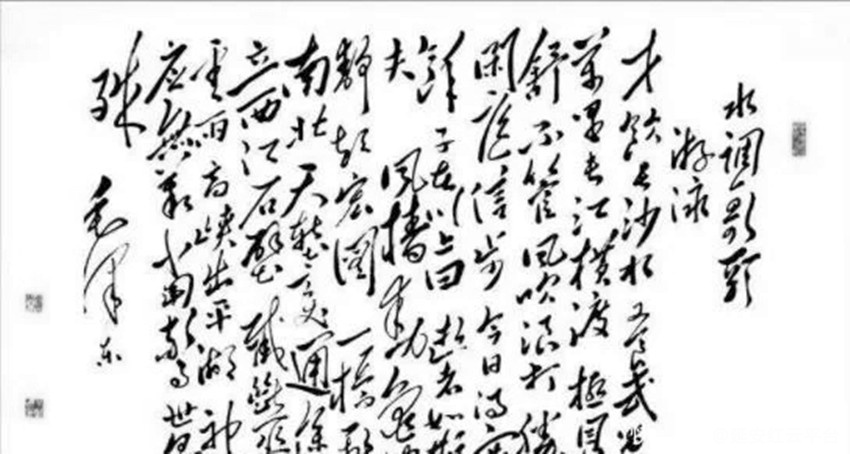 水调歌头
游泳
才饮长沙水 又食武昌
萬里长江横渡 极目
舒 不管风吹浪打 胜
闲庭信步 今日得宽
余 子在川上曰 逝者如斯
夫 风樯动 龟
静 起宏图 一桥飞
南北 天堑变通途
立西江石壁 截断巫
云雨 高峡出平湖 神
应無恙 当惊世界
殊
毛泽东